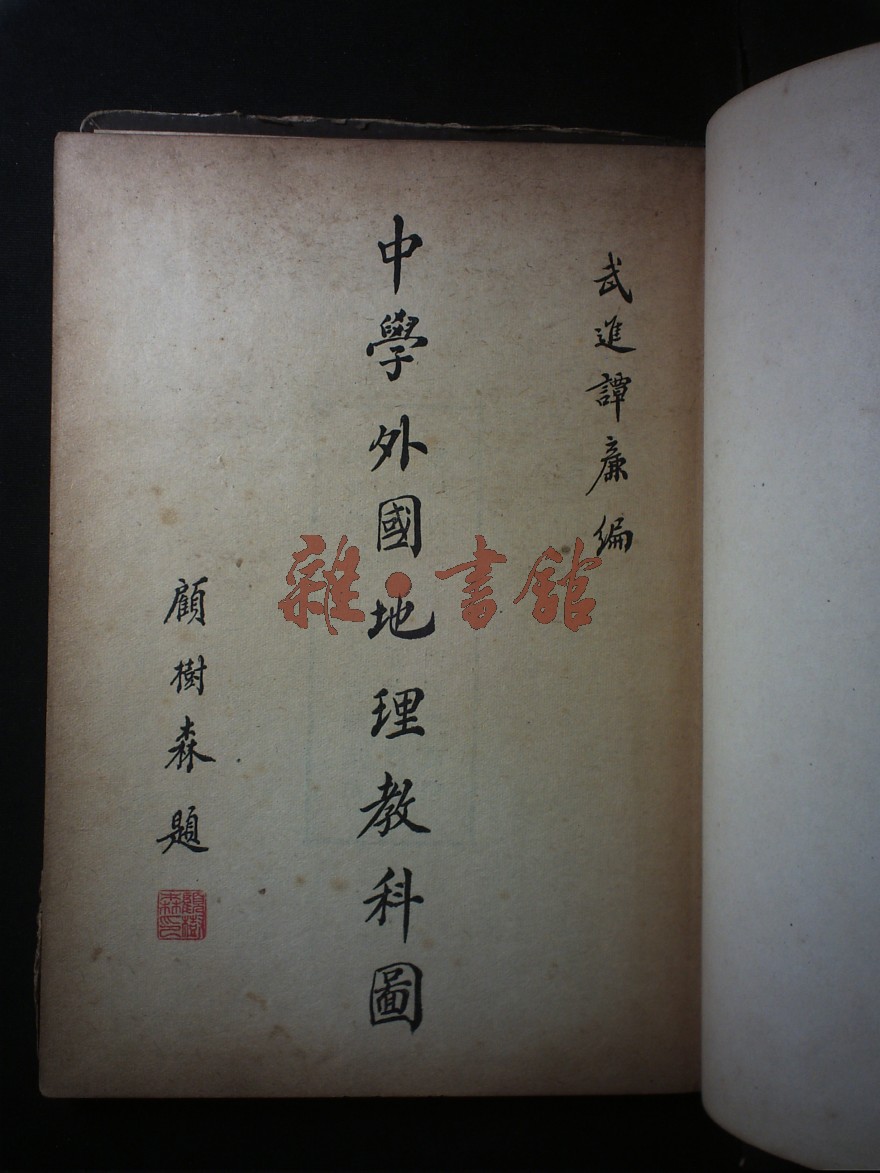 武進譚廉編
中學外國地理教科圖
顧樹森題
顧樹森印
雜·書館